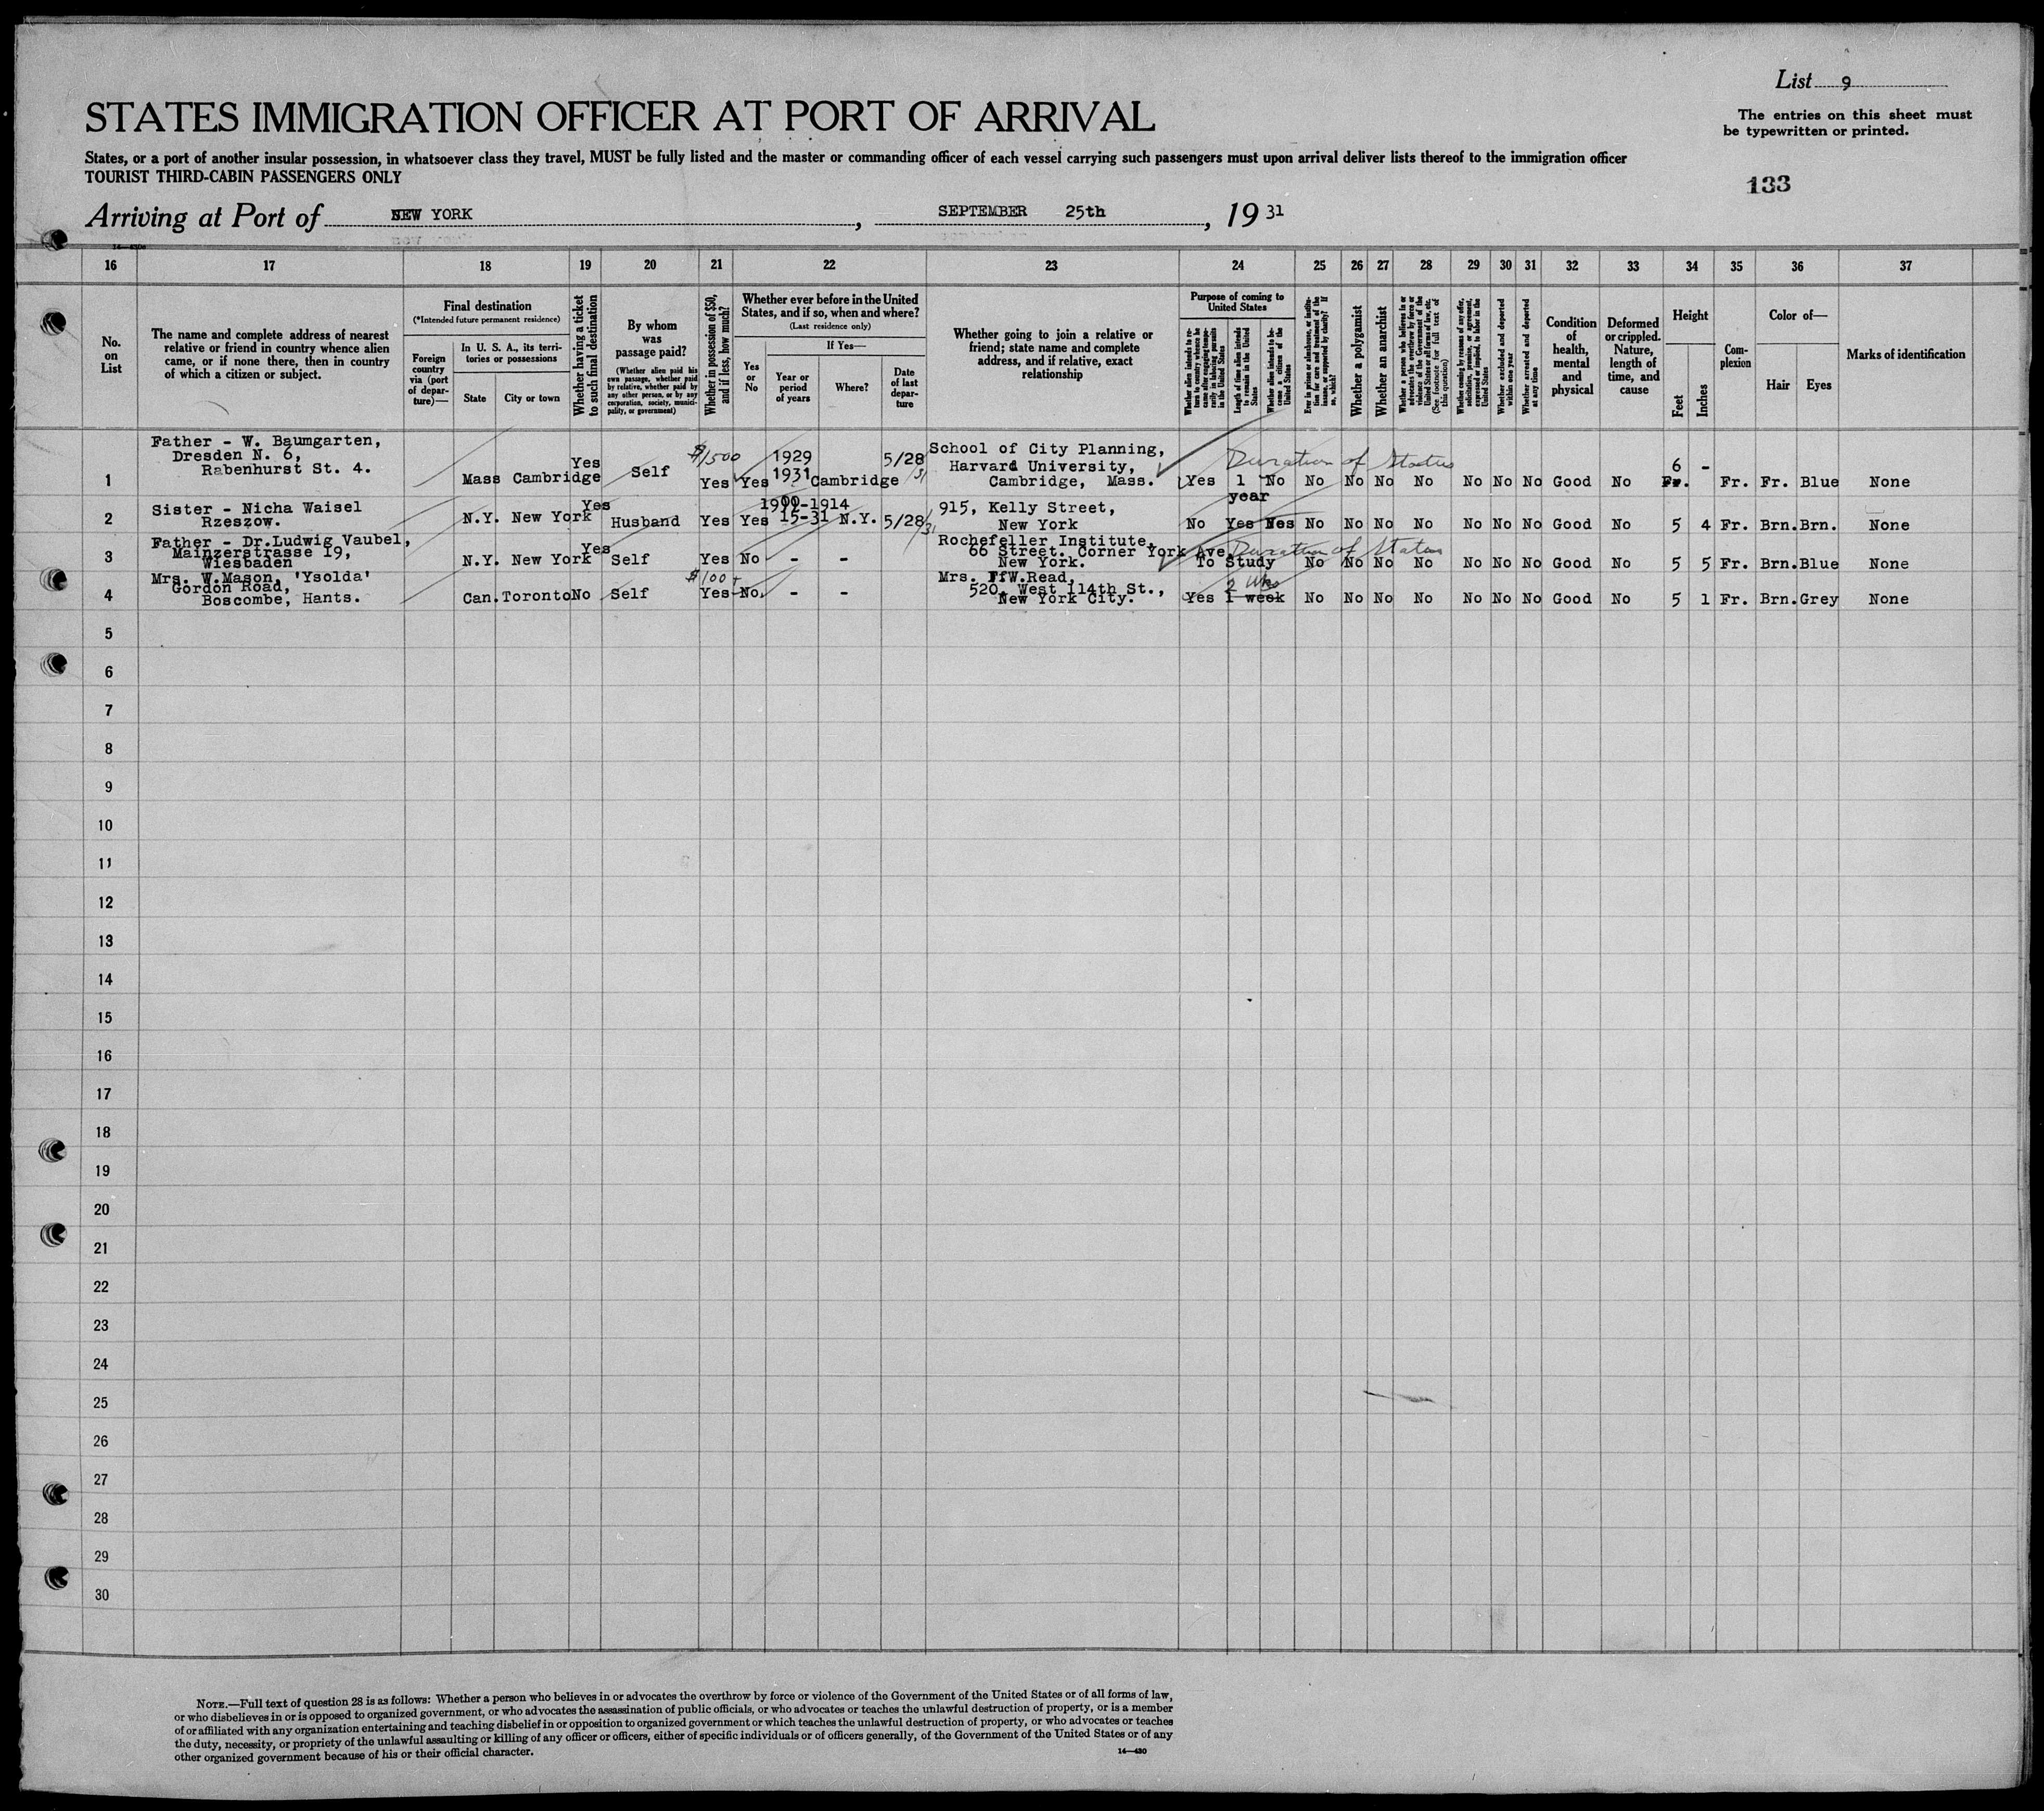 List 9
STATES IMMIGRATION OFFICER AT PORT OF ARRIVAL
The entries on this sheet must
be typewritten or printed.
States, or a port of another insular possession, in whatsoever class they travel, MUST be fully listed and the master or commanding officer of each vessel carrying such passengers must upon arrival deliver lists thereof to the immigration officer
TOURIST THIRD-CABIN PASSENGERS ONLY
133
Arriving at Port of NEW YORK, SEPTEMBER 25th, 1931
16 17 18 19 20 21 22 23 24 25 26 27 28 29 30 31 32 33 34 35 36 37
No.
on
List
The name and complete address of nearest
relative or friend in country whence alien
came, or if none there, then in country
of which a citizen or subject.
Final destination
(*Intended future permanent residence)
Foreign
country
via (port
of depar-
ture)—
In U. S. A., its terri-
tories or possessions
State
City or town
Whether having a ticket
to such final destination
By whom
was
passage paid?
(Whether alien paid his
own passage, whether paid
by relative, whether paid by
any other person, or by any
corporation, society, munici-
pality, or government)
Whether in possession of $50,
and if less, how much?
Whether ever before in the United
States, and if so, when and where?
(Last residence only)
Yes
or
No
If Yes—
Year or
period
of years
Where?
Date
of last
depar-
ture
Whether going to join a relative or
friend; state name and complete
address, and if relative, exact
relationship
Purpose of coming to
United States
Whether alien intends to re-
turn to country whence he
came after engaging tempo-
rarily in laboring pursuits
in the United States
Length of time alien intends
to remain in the United
States
Whether alien intends to be-
come a citizen of the
United States
Ever in prison or almshouse, or institu-
tion for care and treatment of the
insane, or supported by charity? If
so, which?
Whether a polygamist
Whether an anarchist
Whether a person who believes in or
advocates the overthrow by force or
violence of the Government of the
United States or all forms of law, etc.
(See footnote for full text of
this question)
Whether coming by reason of any offer,
solicitation, promise, or agreement,
expressed or implied, to labor in the
United States
Whether excluded and deported
within one year
Whether arrested and deported
at any time
Condition
of
health,
mental
and
physical
Deformed
or crippled.
Nature,
length of
time, and
cause
Height
Feet
Inches
Com-
plexion
Color of—
Hair
Eyes
Marks of identification
Father - W. Baumgarten,
Dresden N. 6,
Rabenhurst St. 4.
1 Mass Cambridge Yes Self $1500 Yes Yes 1929 1931 Cambridge 5/28/31
School of City Planning,
Harvard University,
Cambridge, Mass.
Duration of Status
Yes 1 year No No No No No No No No Good No 6 - Fr. Fr. Fr. Blue None
Sister - Nicha Waisel
Rzeszow.
2 N.Y. New York Yes Husband Yes Yes -1914 15-31 N.Y. 5/28/31
915, Kelly Street,
New York
No Yes Yes No No No No No No No Good No 5 4 Fr. Brn. Brn. None
Father - Dr.Ludwig Vaubel,
Mainzerstrasse 19,
Wiesbaden
3 N.Y. New York Yes Self Yes No - -
Rochefeller Institute,
66 Street. Corner York Ave,
New York.
Duration of Status
To Study No No No No No No No Good No 5 5 Fr. Brn. Blue None
Mrs. W.Mason, 'Ysolda'
Gordon Road,
Boscombe, Hants.
4 Can. Toronto No Self $100+ Yes No. - -
Mrs. W.Read,
520, West 114th St.,
New York City.
2 wks
Yes 1 week No No No No No No No Good No 5 1 Fr. Brn. Grey None
5
6
7
8
9
10
11
12
13
14
15
16
17
18
19
20
21
22
23
24
25
26
27
28
29
30
NOTE.—Full text of question 28 is as follows: Whether a person who believes in or advocates the overthrow by force or violence of the Government of the United States or of all forms of law,
or who disbelieves in or is opposed to organized government, or who advocates the assassination of public officials, or who advocates or teaches the unlawful destruction of property, or is a member
of or affiliated with any organization entertaining and teaching disbelief in or opposition to organized government or which teaches the unlawful destruction of property, or who advocates or teaches
the duty, necessity, or propriety of the unlawful assaulting or killing of any officer or officers, either of specific individuals or of officers generally, of the Government of the United States or of any
other organized government because of his or their official character.
14—430